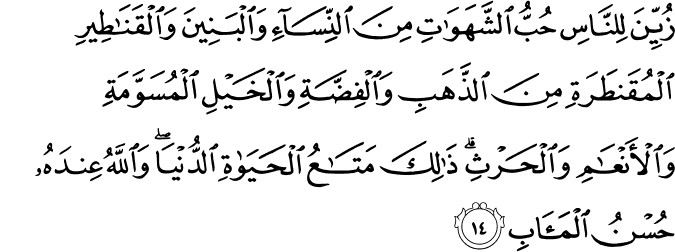 زُيِّنَ لِلنَّاسِ حُبُّ ٱلشَّهَوَٰتِ مِنَ ٱلنِّسَآءِ وَٱلْبَنِينَ وَٱلْقَنَٰطِيرِ
ٱلْمُقَنطَرَةِ مِنَ ٱلذَّهَبِ وَٱلْفِضَّةِ وَٱلْخَيْلِ ٱلْمُسَوَّمَةِ
وَٱلْأَنْعَٰمِ وَٱلْحَرْثِ ۗ ذَٰلِكَ مَتَٰعُ ٱلْحَيَوٰةِ ٱلدُّنْيَا ۖ وَٱللَّهُ عِندَهُۥ
حُسْنُ ٱلْمَـَٔابِ ١٤